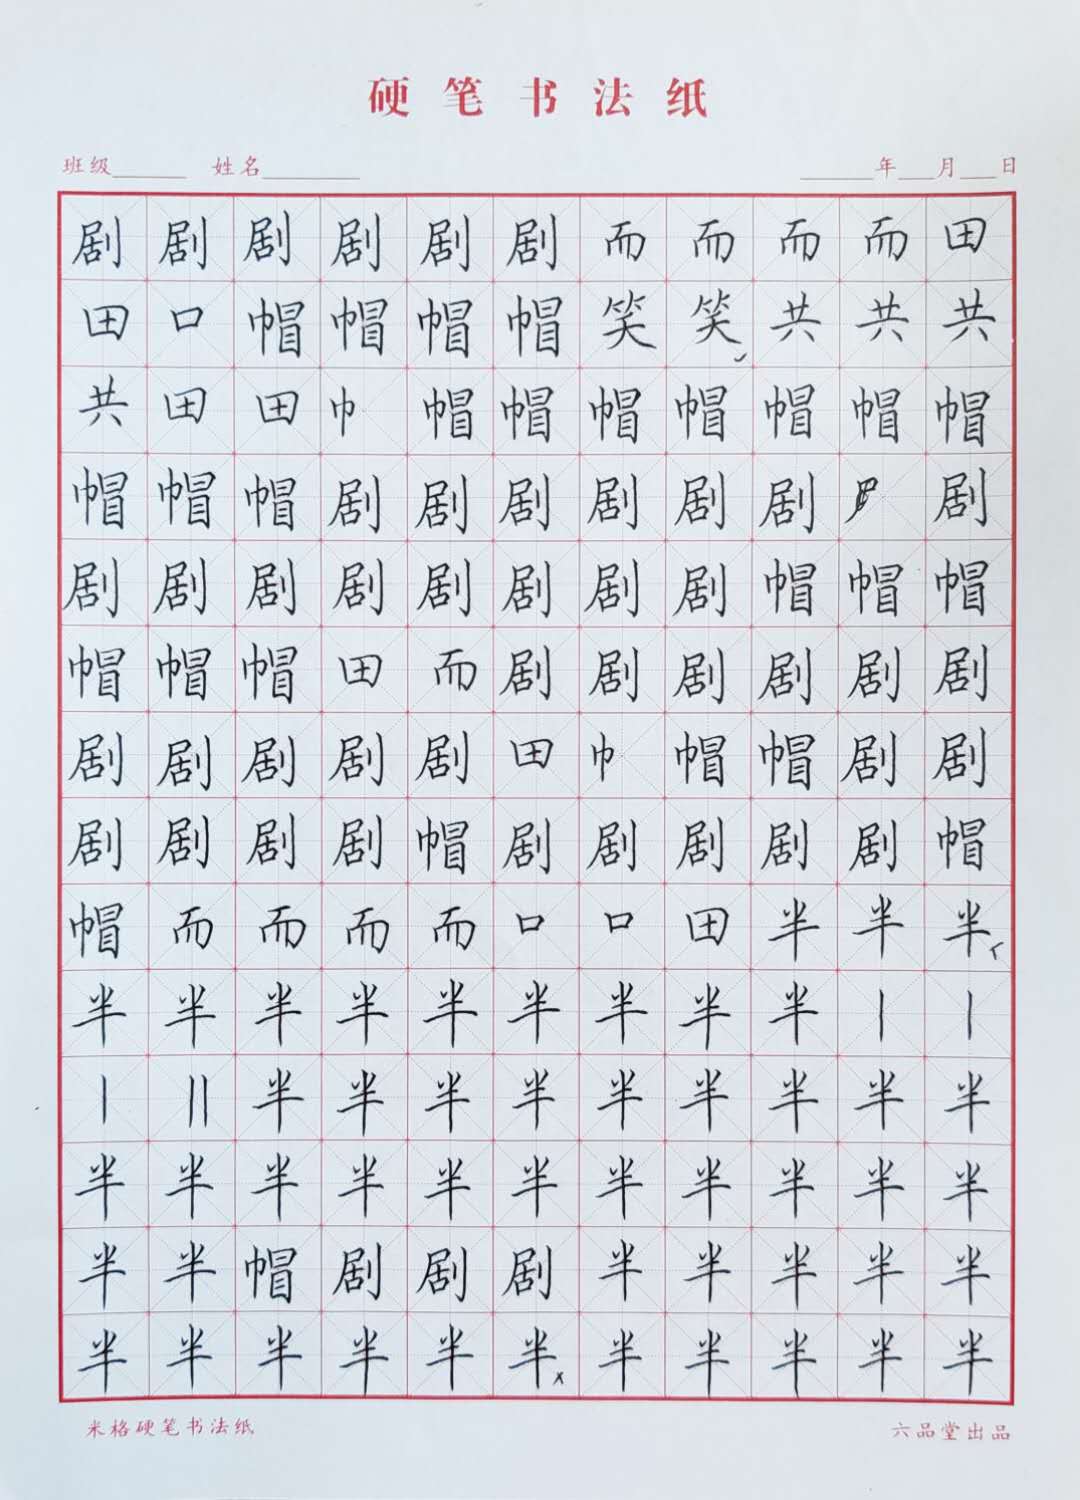 硬笔书法纸
班级______ 姓名________ ______年___月___日
剧剧剧剧剧剧而而而而田
田口帽帽帽帽笑笑共共共
共田田巾帽帽帽帽帽帽帽
帽帽帽剧剧剧剧剧剧剧
剧剧剧剧剧剧剧剧帽帽帽
帽帽帽田而剧剧剧剧剧剧
剧剧剧剧剧田巾帽帽剧剧
剧剧剧剧帽剧剧剧剧剧帽
帽而而而而口口田半半半
半半半半半半半半半丨丨
丨半半半半半半半半半
半半半半半半半半半半半
半半帽剧剧剧半半半半半
半半半半半半半半半半半
米格硬笔书法纸 六品堂出品